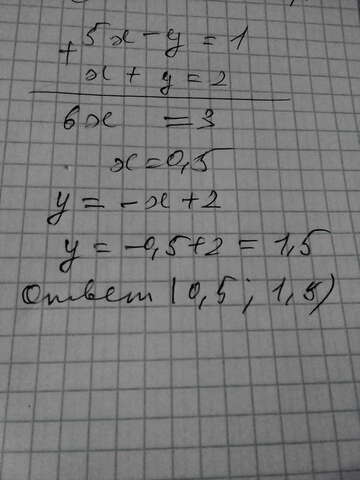 + 5x - y = 1
x + y = 2
6x = 3
x = 0,5
y = -x + 2
y = -0,5 + 2 = 1,5
Ответ (0,5; 1,5)